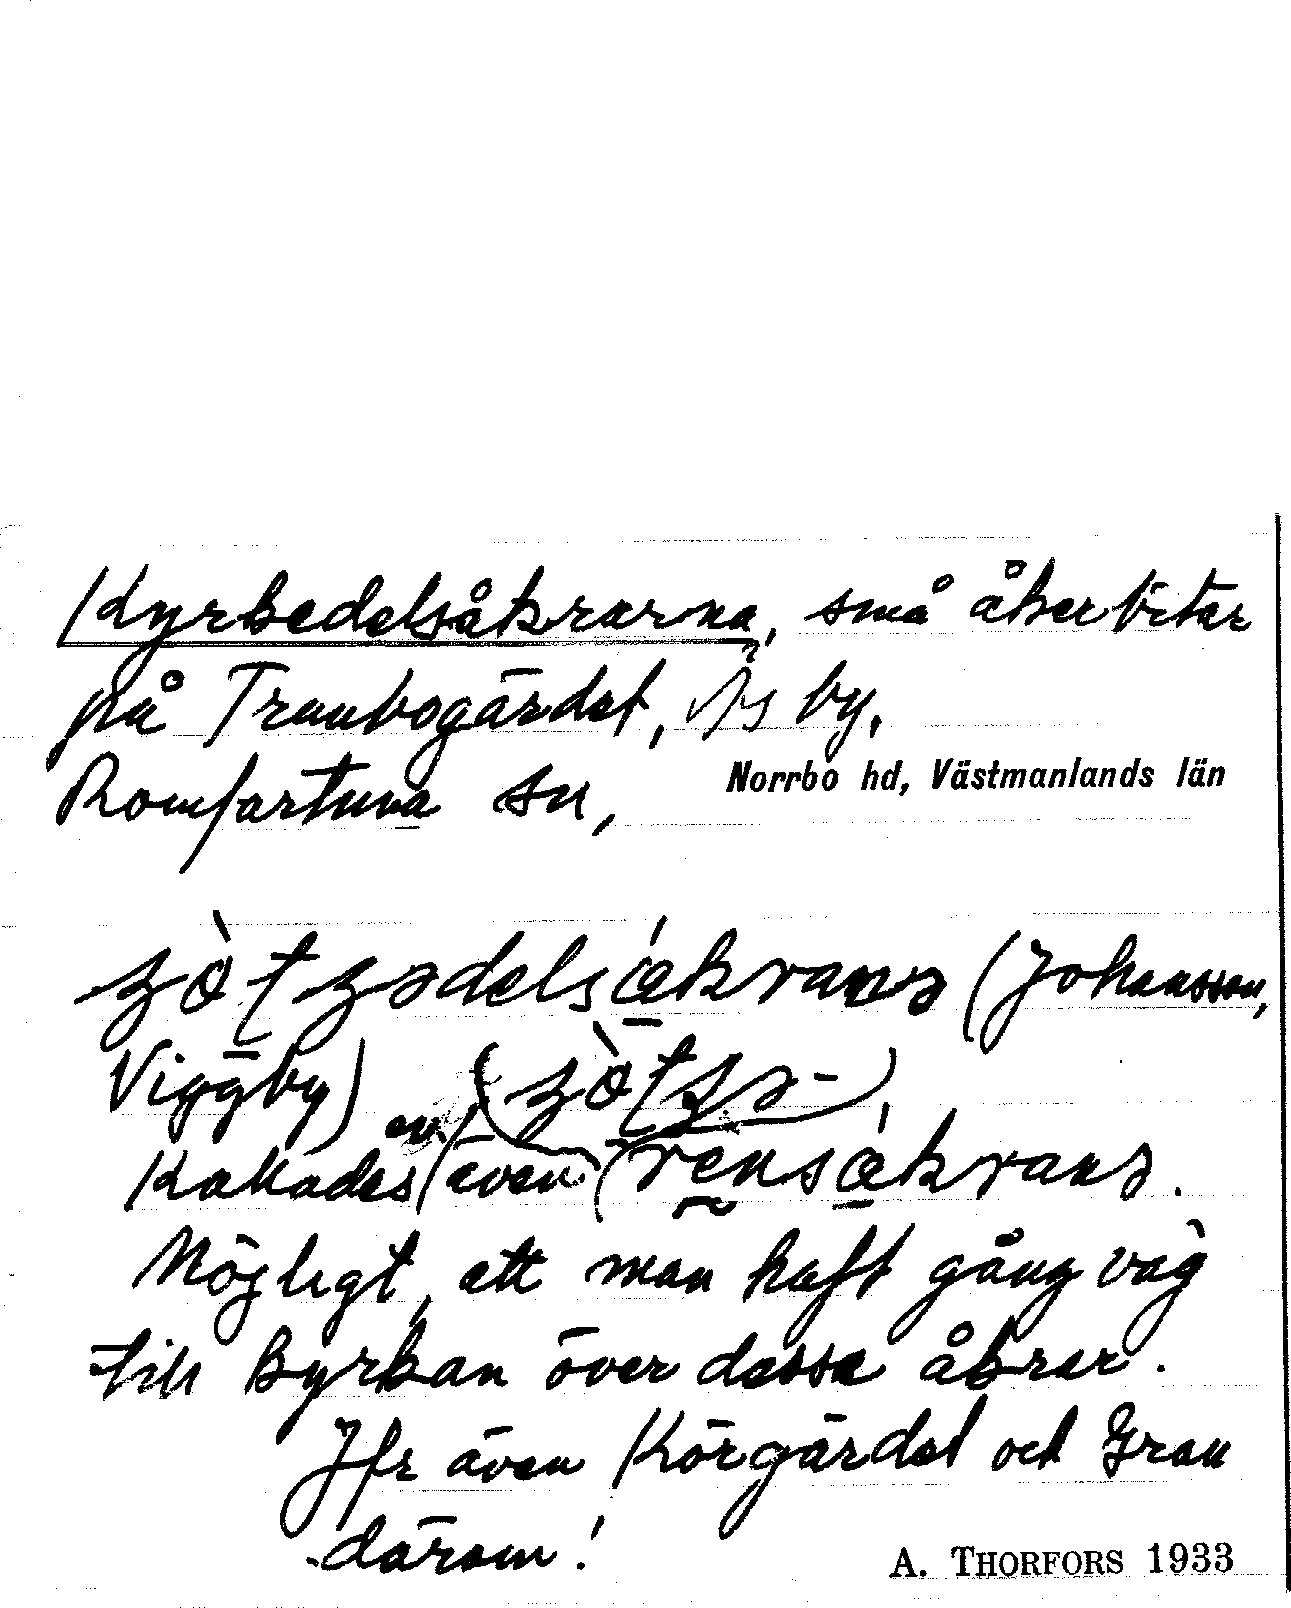 Kyrkedelsåkrarna, små åkerbitar
på Tranbogärdet, by,
Romfartuna sn, Norrbo hd, Västmanlands län
(Johansson,
Viggby)
Kallades även
Möjligt, att man haft gångväg
till kyrkan över dessa åkrar.
Jfr även Körgärdet och Gran
därom!
A. THORFORS 1933